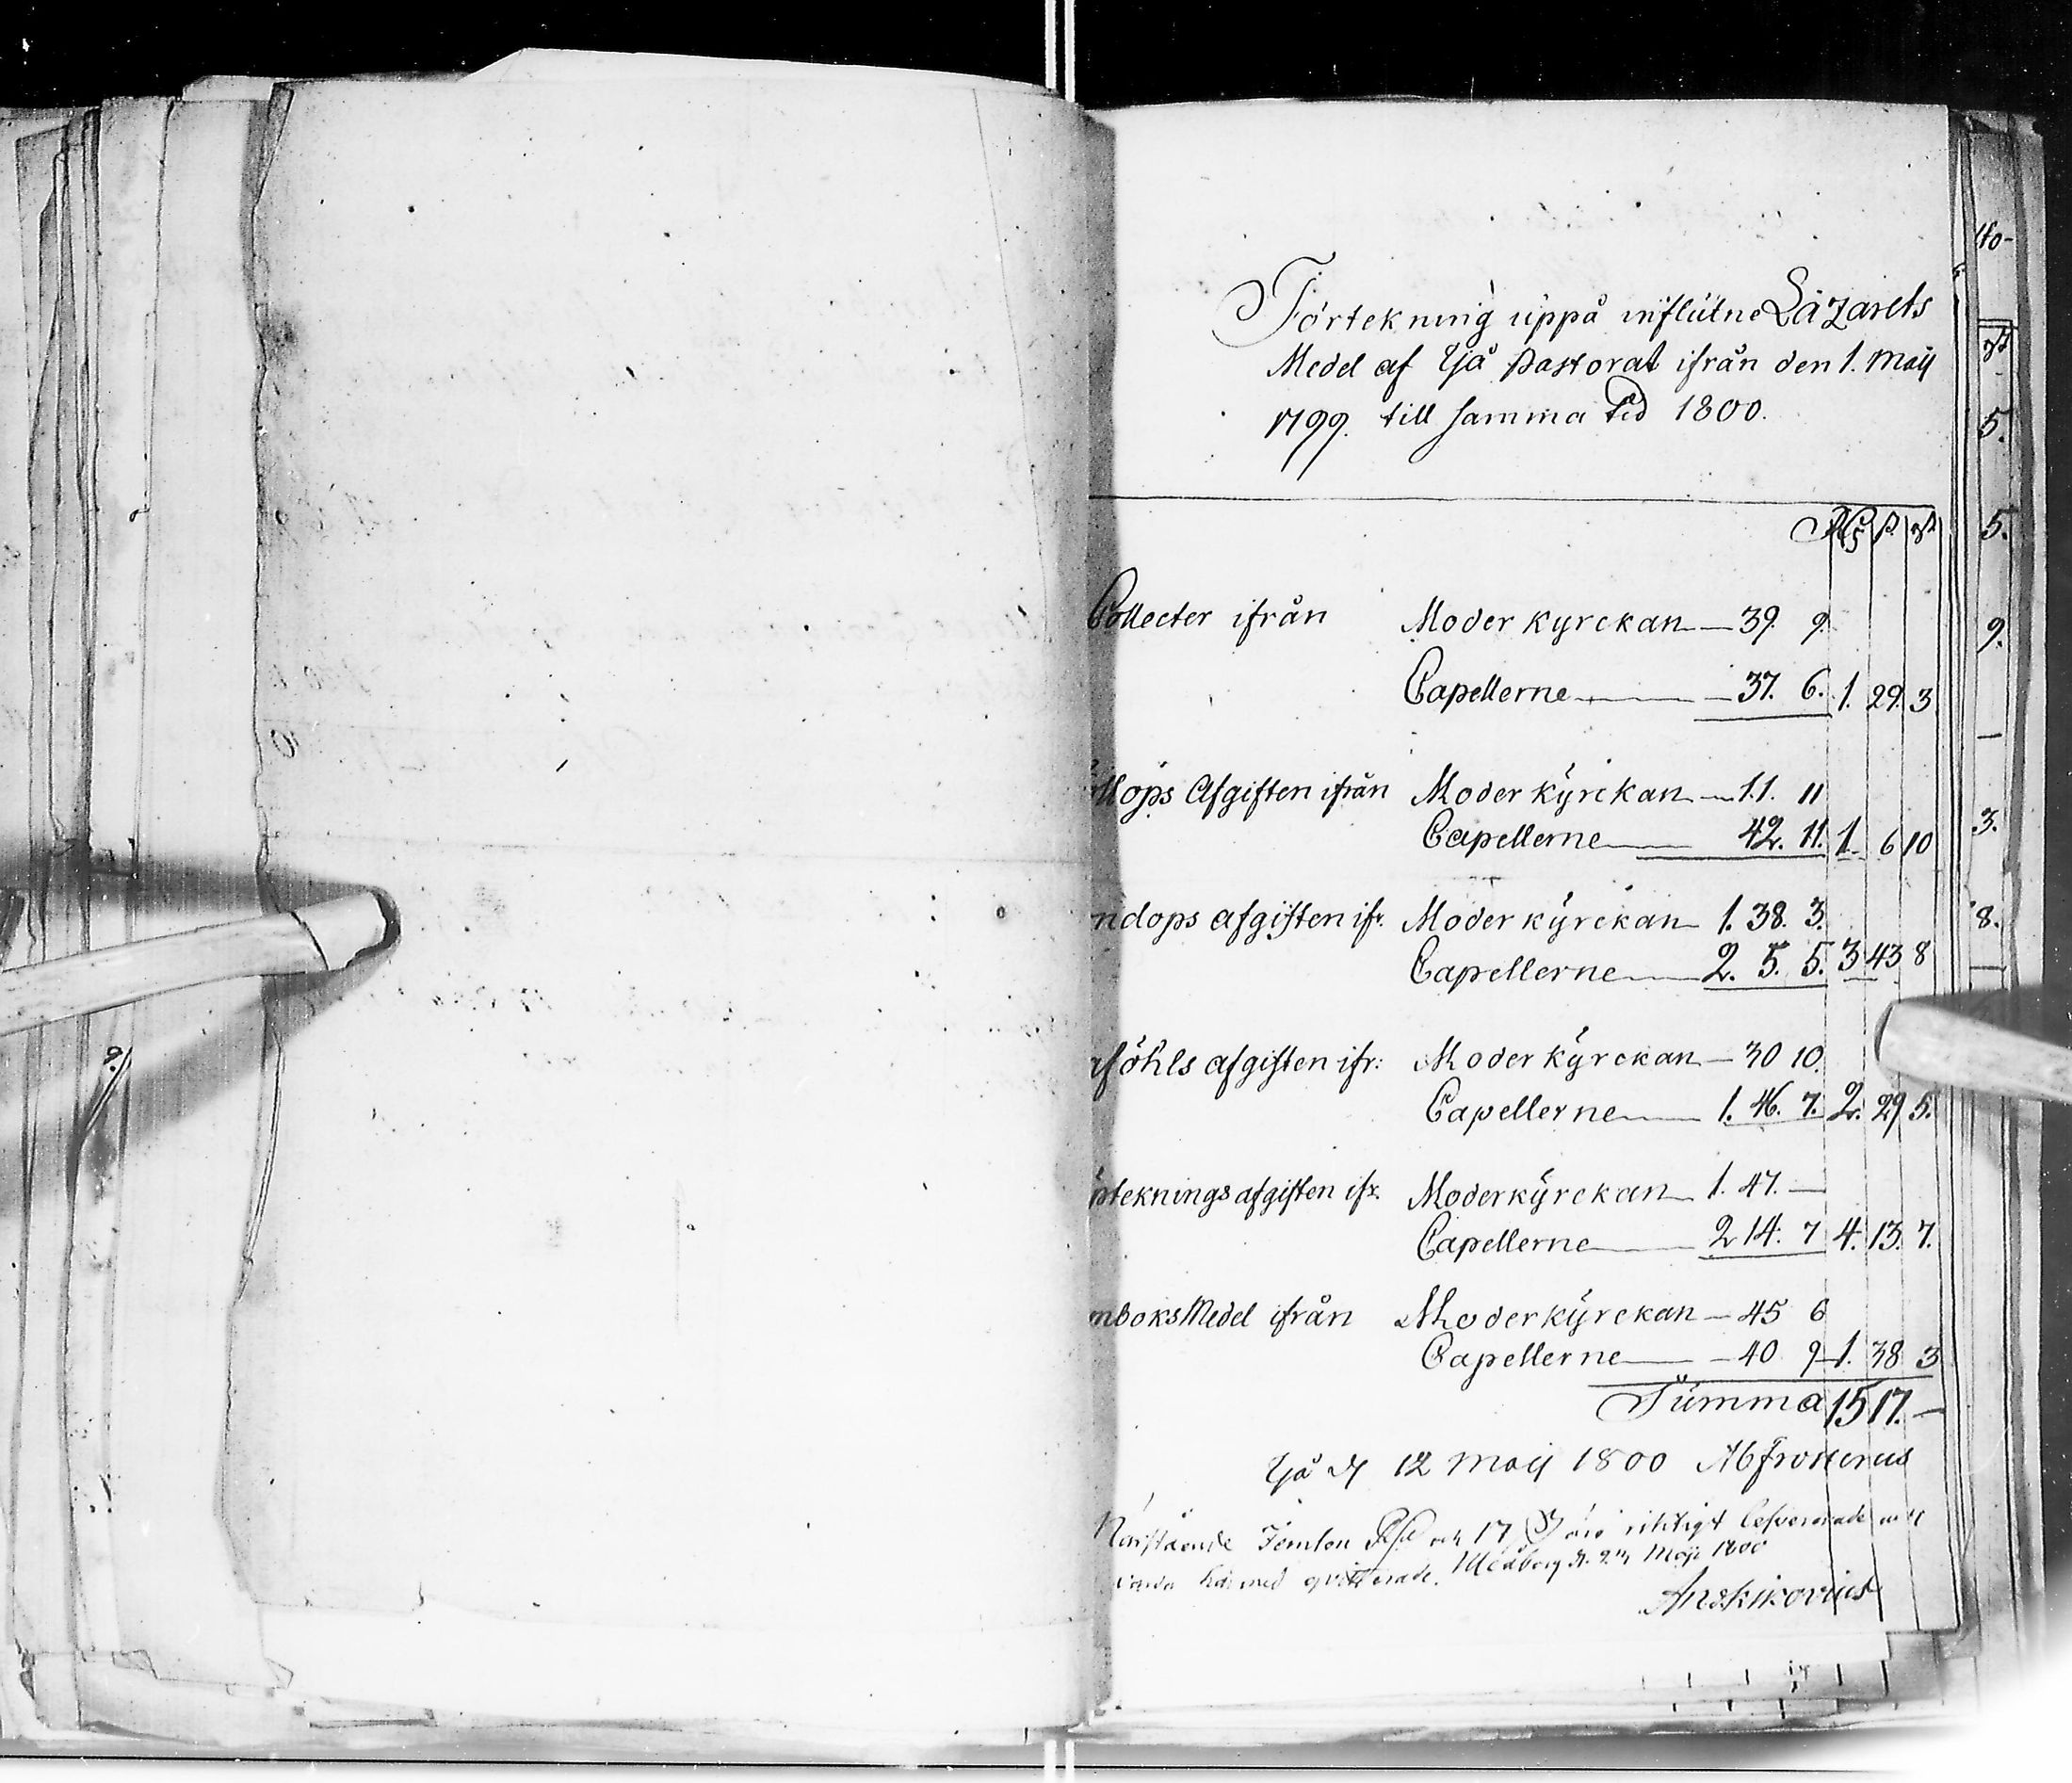 Förtekning uppå influtne Lazarets
Medel af Ijå Pastorat ifrån den 1. Maij
1799. till samma tid 1800.
Rd s. rst
Collecter ifrån Moder kyrckan — 39. 9.
Capellerne — 37. 6. 1. 29. 3
llops Afgiften ifrån Moder kyrckan — 11. 11
Capellerne — 42. 11. 1. 6 10
ndops afgiften ifr. Moder kyrckan 1. 38. 3.
Capellerne — 2. 5. 5. 3 43 8
föhls afgiften ifr: Moder kyrckan — 30 10.
Capellerne — 1. 46. 7. 2. 29 5.
teknings afgiften ifr. Moderkyrckan 1. 47. —
Capellerne — 2 14. 7 4. 13. 7.
mboks Medel ifrån Moderkyrckan — 45 6
Capellerne — 40 9 1. 38 3
Summa 15 17. —
Ijå d 12 Maij 1800
Femton och 17 riktigt lefvererade
härmed qvitterade. Maji 1800
40-
5.
5.
9.
—
3.
8.
—
9.